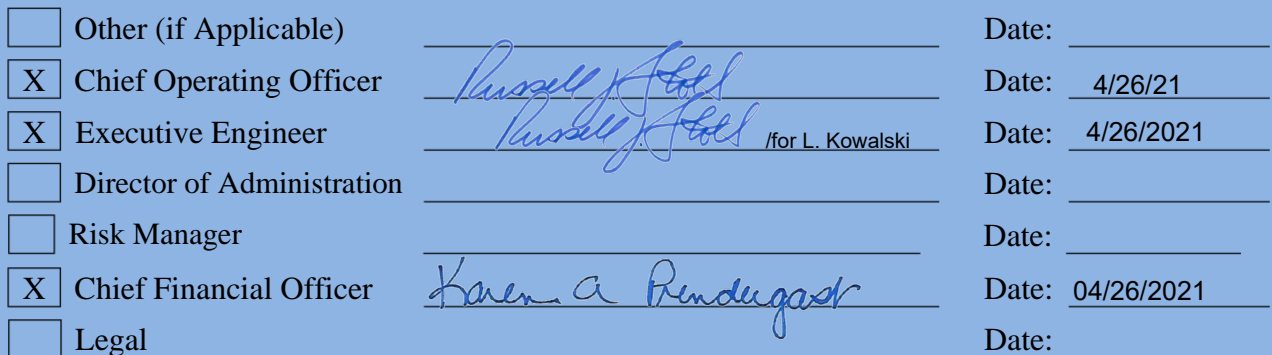 Other (if Applicable) Date:
X Chief Operating Officer Russell J. Stohl Date: 4/26/21
X Executive Engineer Russell J. Stohl /for L. Kowalski Date: 4/26/2021
Director of Administration Date:
Risk Manager Date:
X Chief Financial Officer Karen A Prendergast Date: 04/26/2021
Legal Date: